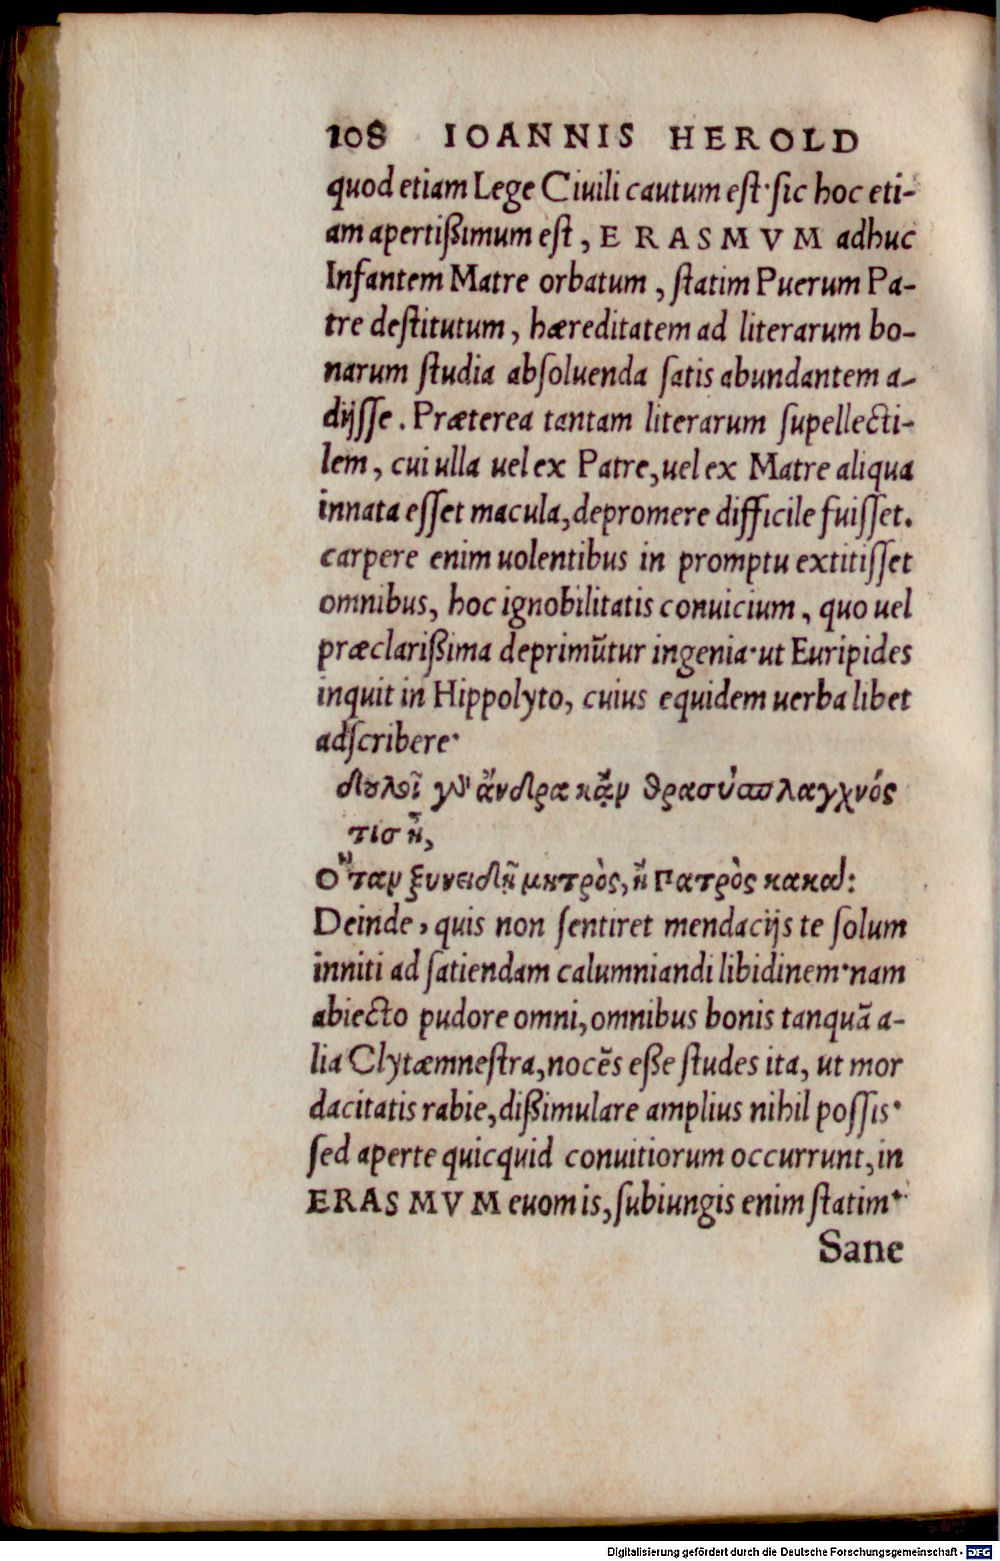 108 IOANNIS HEROLD
quod etiam Lege Ciuili cautum eſt·ſic hoc eti-
am apertißimum eſt, ERASMVM adhuc
Infantem Matre orbatum, ſtatim Puerum Pa-
tre deſtitutum, hæreditatem ad literarum bo-
narum ſtudia abſoluenda ſatis abundantem a-
dijſſe. Præterea tantam literarum ſupellecti-
lem, cui ulla uel ex Patre, uel ex Matre aliqua
innata eſſet macula, depromere difficile fuiſſet.
carpere enim uolentibus in promptu extitiſſet
omnibus, hoc ignobilitatis conuicium, quo uel
præclarißima deprimũtur ingenia·ut Euripides
inquit in Hippolyto, cuius equidem uerba libet
adſcribere·
δουλοῖ γδ' ἄνδρα κᾂν θρασύσπλαγχνός
τισ ᾖ,
Ὅταν ξυνειδῇ μητρὸς, ἢ πατρὸς κακά:
Deinde, quis non ſentiret mendacijs te ſolum
inniti ad ſatiendam calumniandi libidinem·nam
abiecto pudore omni, omnibus bonis tanquã a-
lia Clytæmneſtra, nocẽs eße ſtudes ita, ut mor
dacitatis rabie, dißimulare amplius nihil poſſis·
ſed aperte quicquid conuitiorum occurrunt, in
ERASMVM euomis, ſubiungis enim ſtatim·
Sane
Digitalisierung gefördert durch die Deutsche Forschungsgemeinschaft - DFG